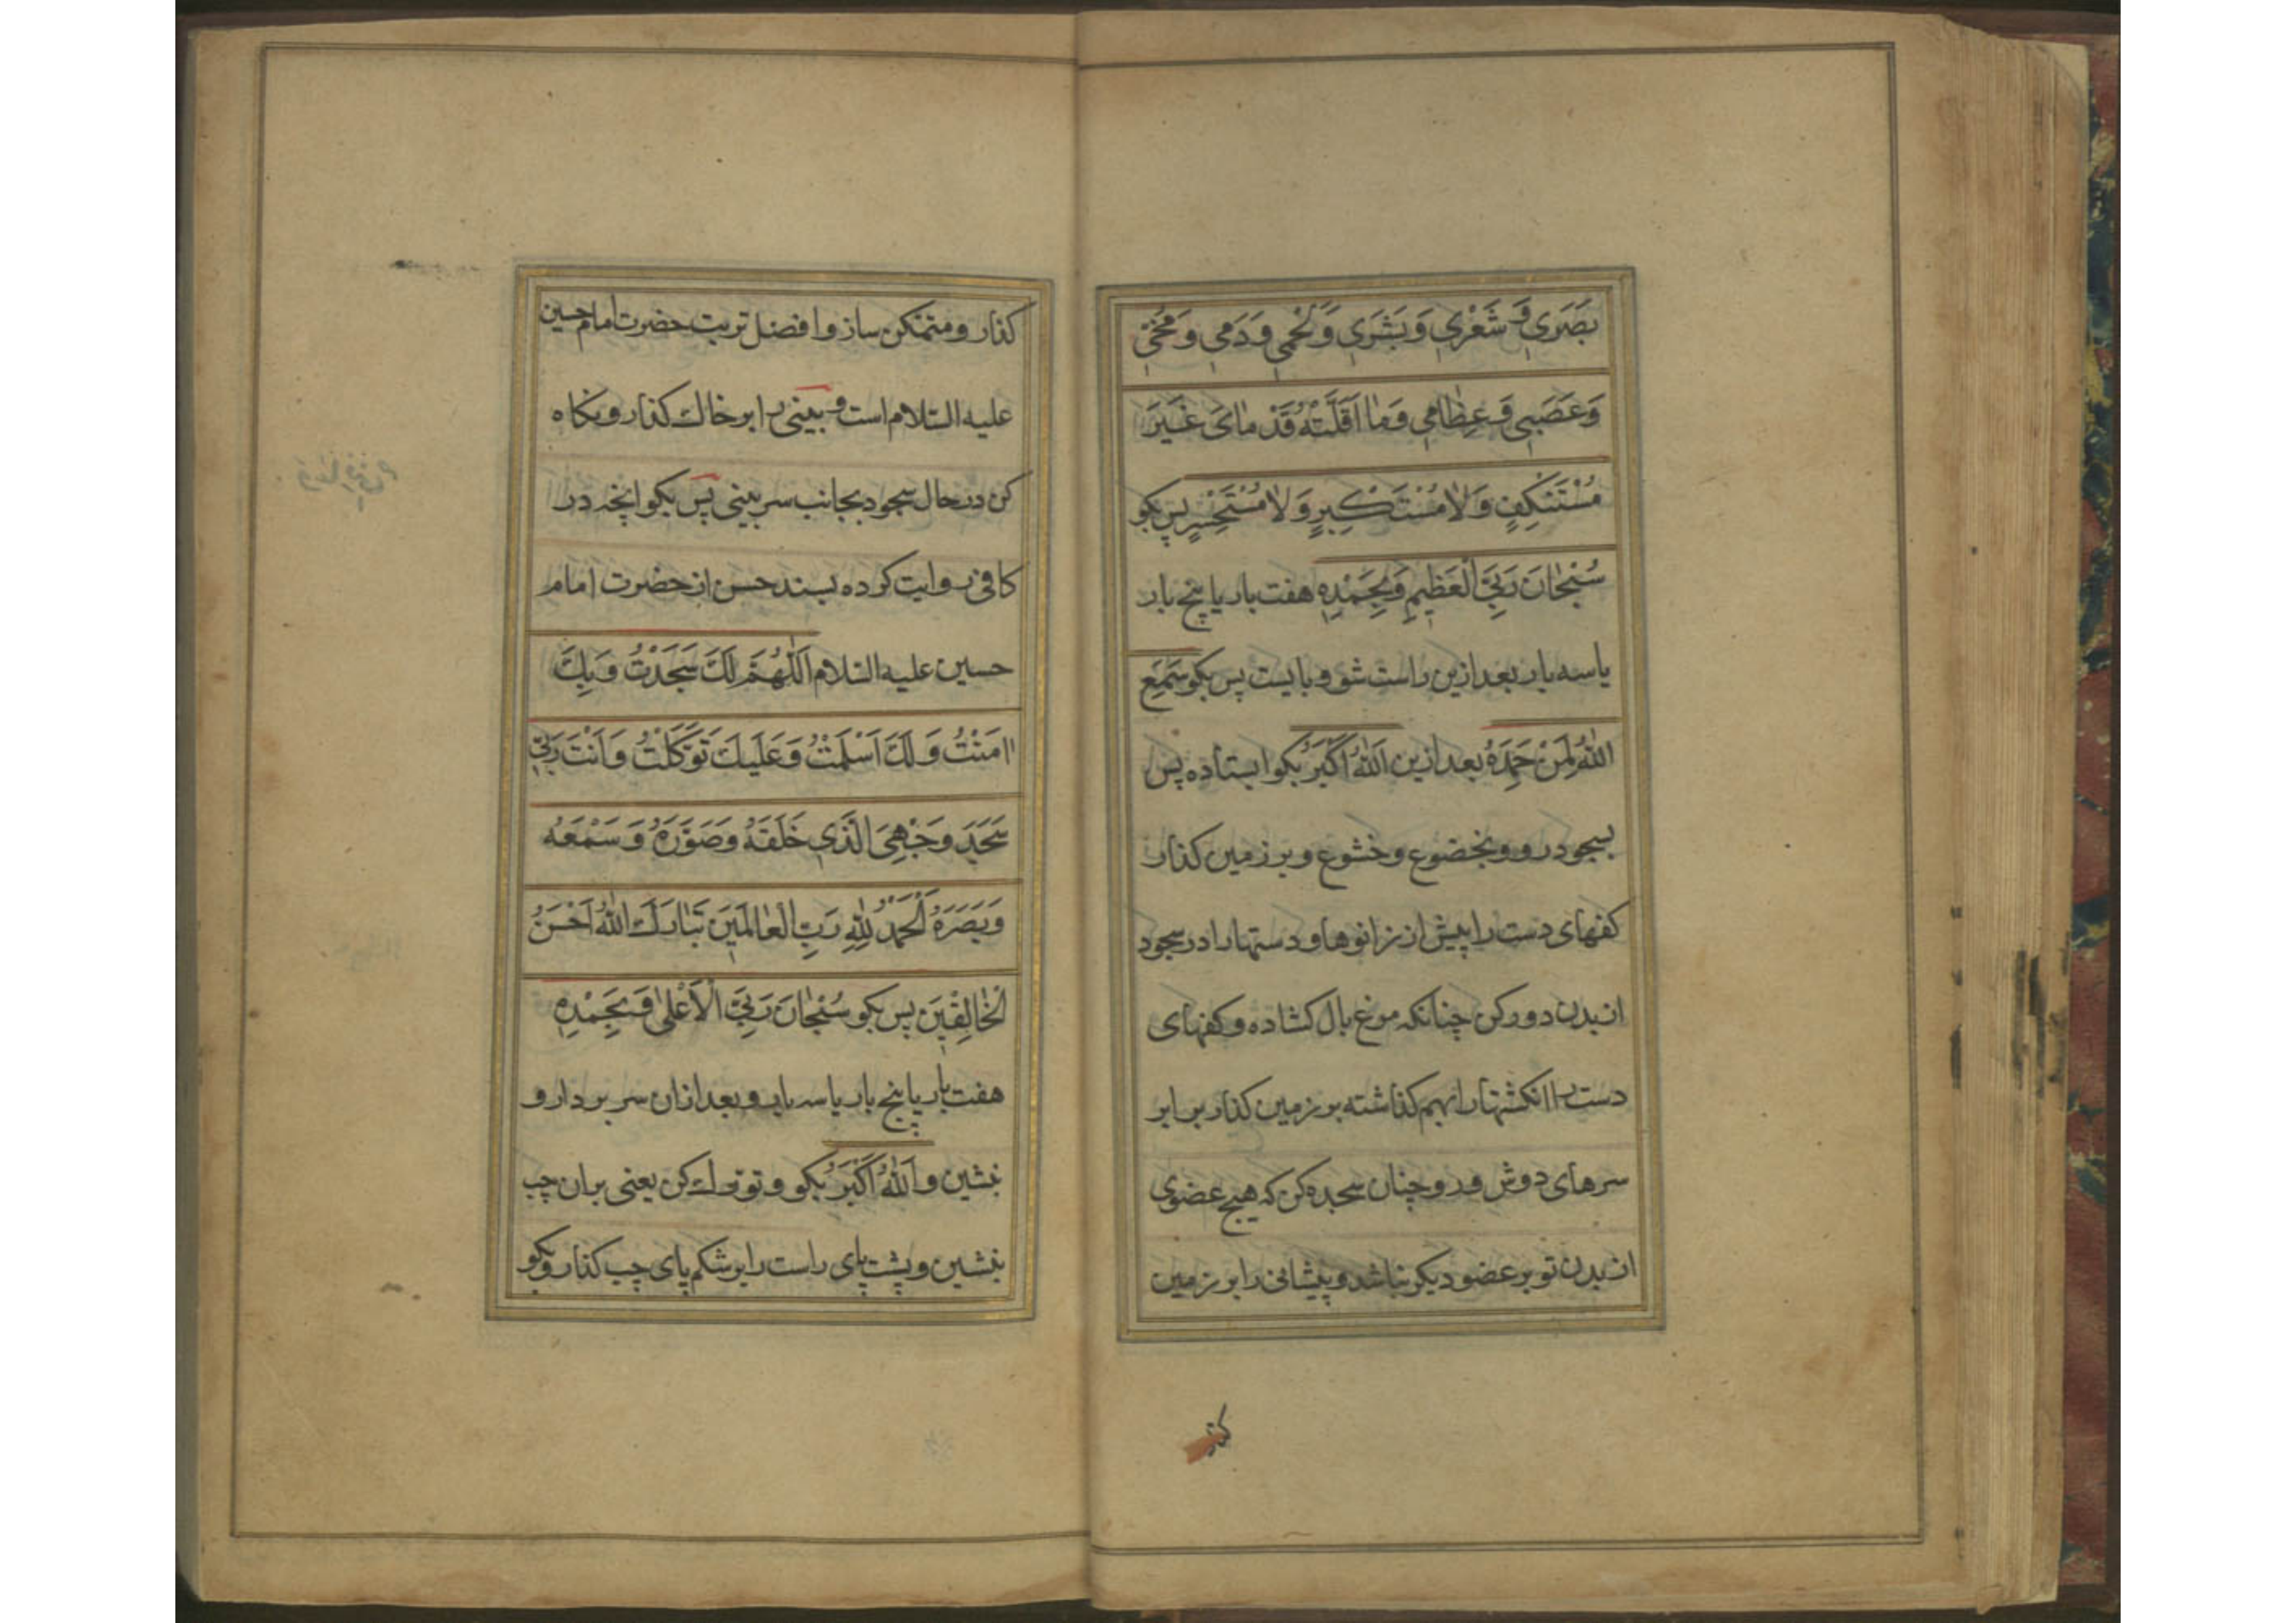 بَصَرِي وَ شَعْرِي وَ بَشَرِي وَ لَحْمِي وَ دَمِي وَ مُخّي
وَ عَصَبِي وَ عِظامِي وَ ما اَقَلَّتْهُ قَدَمايَ غَيْرَ
مُسْتَنْكِفٍ وَ لا مُسْتَكْبِرٍ وَ لا مُسْتَحْسِرٍ پس بكو
سُبْحانَ رَبِّيَ الْعَظِيمِ وَ بِحَمْدِهِ هفت بار يا پنج بار
يا سه بار بعد ازين راست شو و بايست پس بكو سَمِعَ
اللّٰهُ لِمَنْ حَمِدَهُ بعد ازين اَللّٰهُ اَكْبَرُ بكو ايستاده پس
بسجود رو و بخضوع و خشوع و بر زمين كذار
كفهاى دست را پيش از زانوها و دستها را در سجود
از بدن دور كن چنانكه مرغ بال كشاده و كفهاى
دست را انكشتها را بهم كذاشته بر زمين كذار برابر
سرهاى دوش و رو و چنان سجده كن كه هيچ عضوى
از بدن تو بر عضو ديكر نباشد و پيشانى را بر زمين
كذار و متمكن ساز و افضل تربت حضرت امام حسين
عليه السّلام است و بينى را بر خاك كذار و نكاه
كن در حال سجود بجانب سر بينى پس بكو انچه در
كافى روايت كرده بسند حسن از حضرت امام
حسين عليه السّلام اَللّٰهُمَّ لَكَ سَجَدْتُ وَ بِكَ
اٰمَنْتُ وَ لَكَ اَسْلَمْتُ وَ عَلَيكَ تَوَكَّلْتُ وَ اَنْتَ رَبّي
سَجَدَ وَجْهِيَ الَّذي خَلَقَهُ وَ صَوَّرَهُ وَ سَمْعَهُ
وَ بَصَرَهُ اَلْحَمْدُ لِلّٰهِ رَبِّ الْعالَمينَ تَبارَكَ اللّٰهُ اَحْسَنُ
الْخالِقينَ پس بكو سُبْحانَ رَبِّيَ الْاَعْلى وَ بِحَمْدِهِ
هفت بار يا پنج بار يا سه بار و بعد ازان سر بردار و
بنشين و اَللّٰهُ اَكْبَرُ بكو و تورك كن يعنى بران چپ
بنشين و پشت پاى راست را بر شكم پاى چپ كذار و بكو